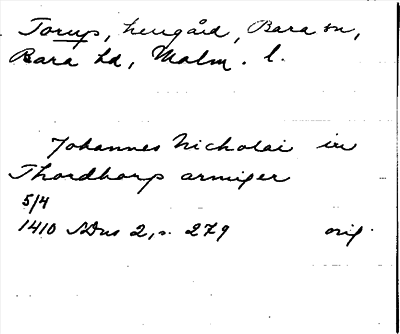 Torup, herrgård, Bara sn,
Bara hd, Malm. l.
Johannes Nicholai in
Thordthorp armiger
5/4
1410 SDns 2, s. 279 orig.